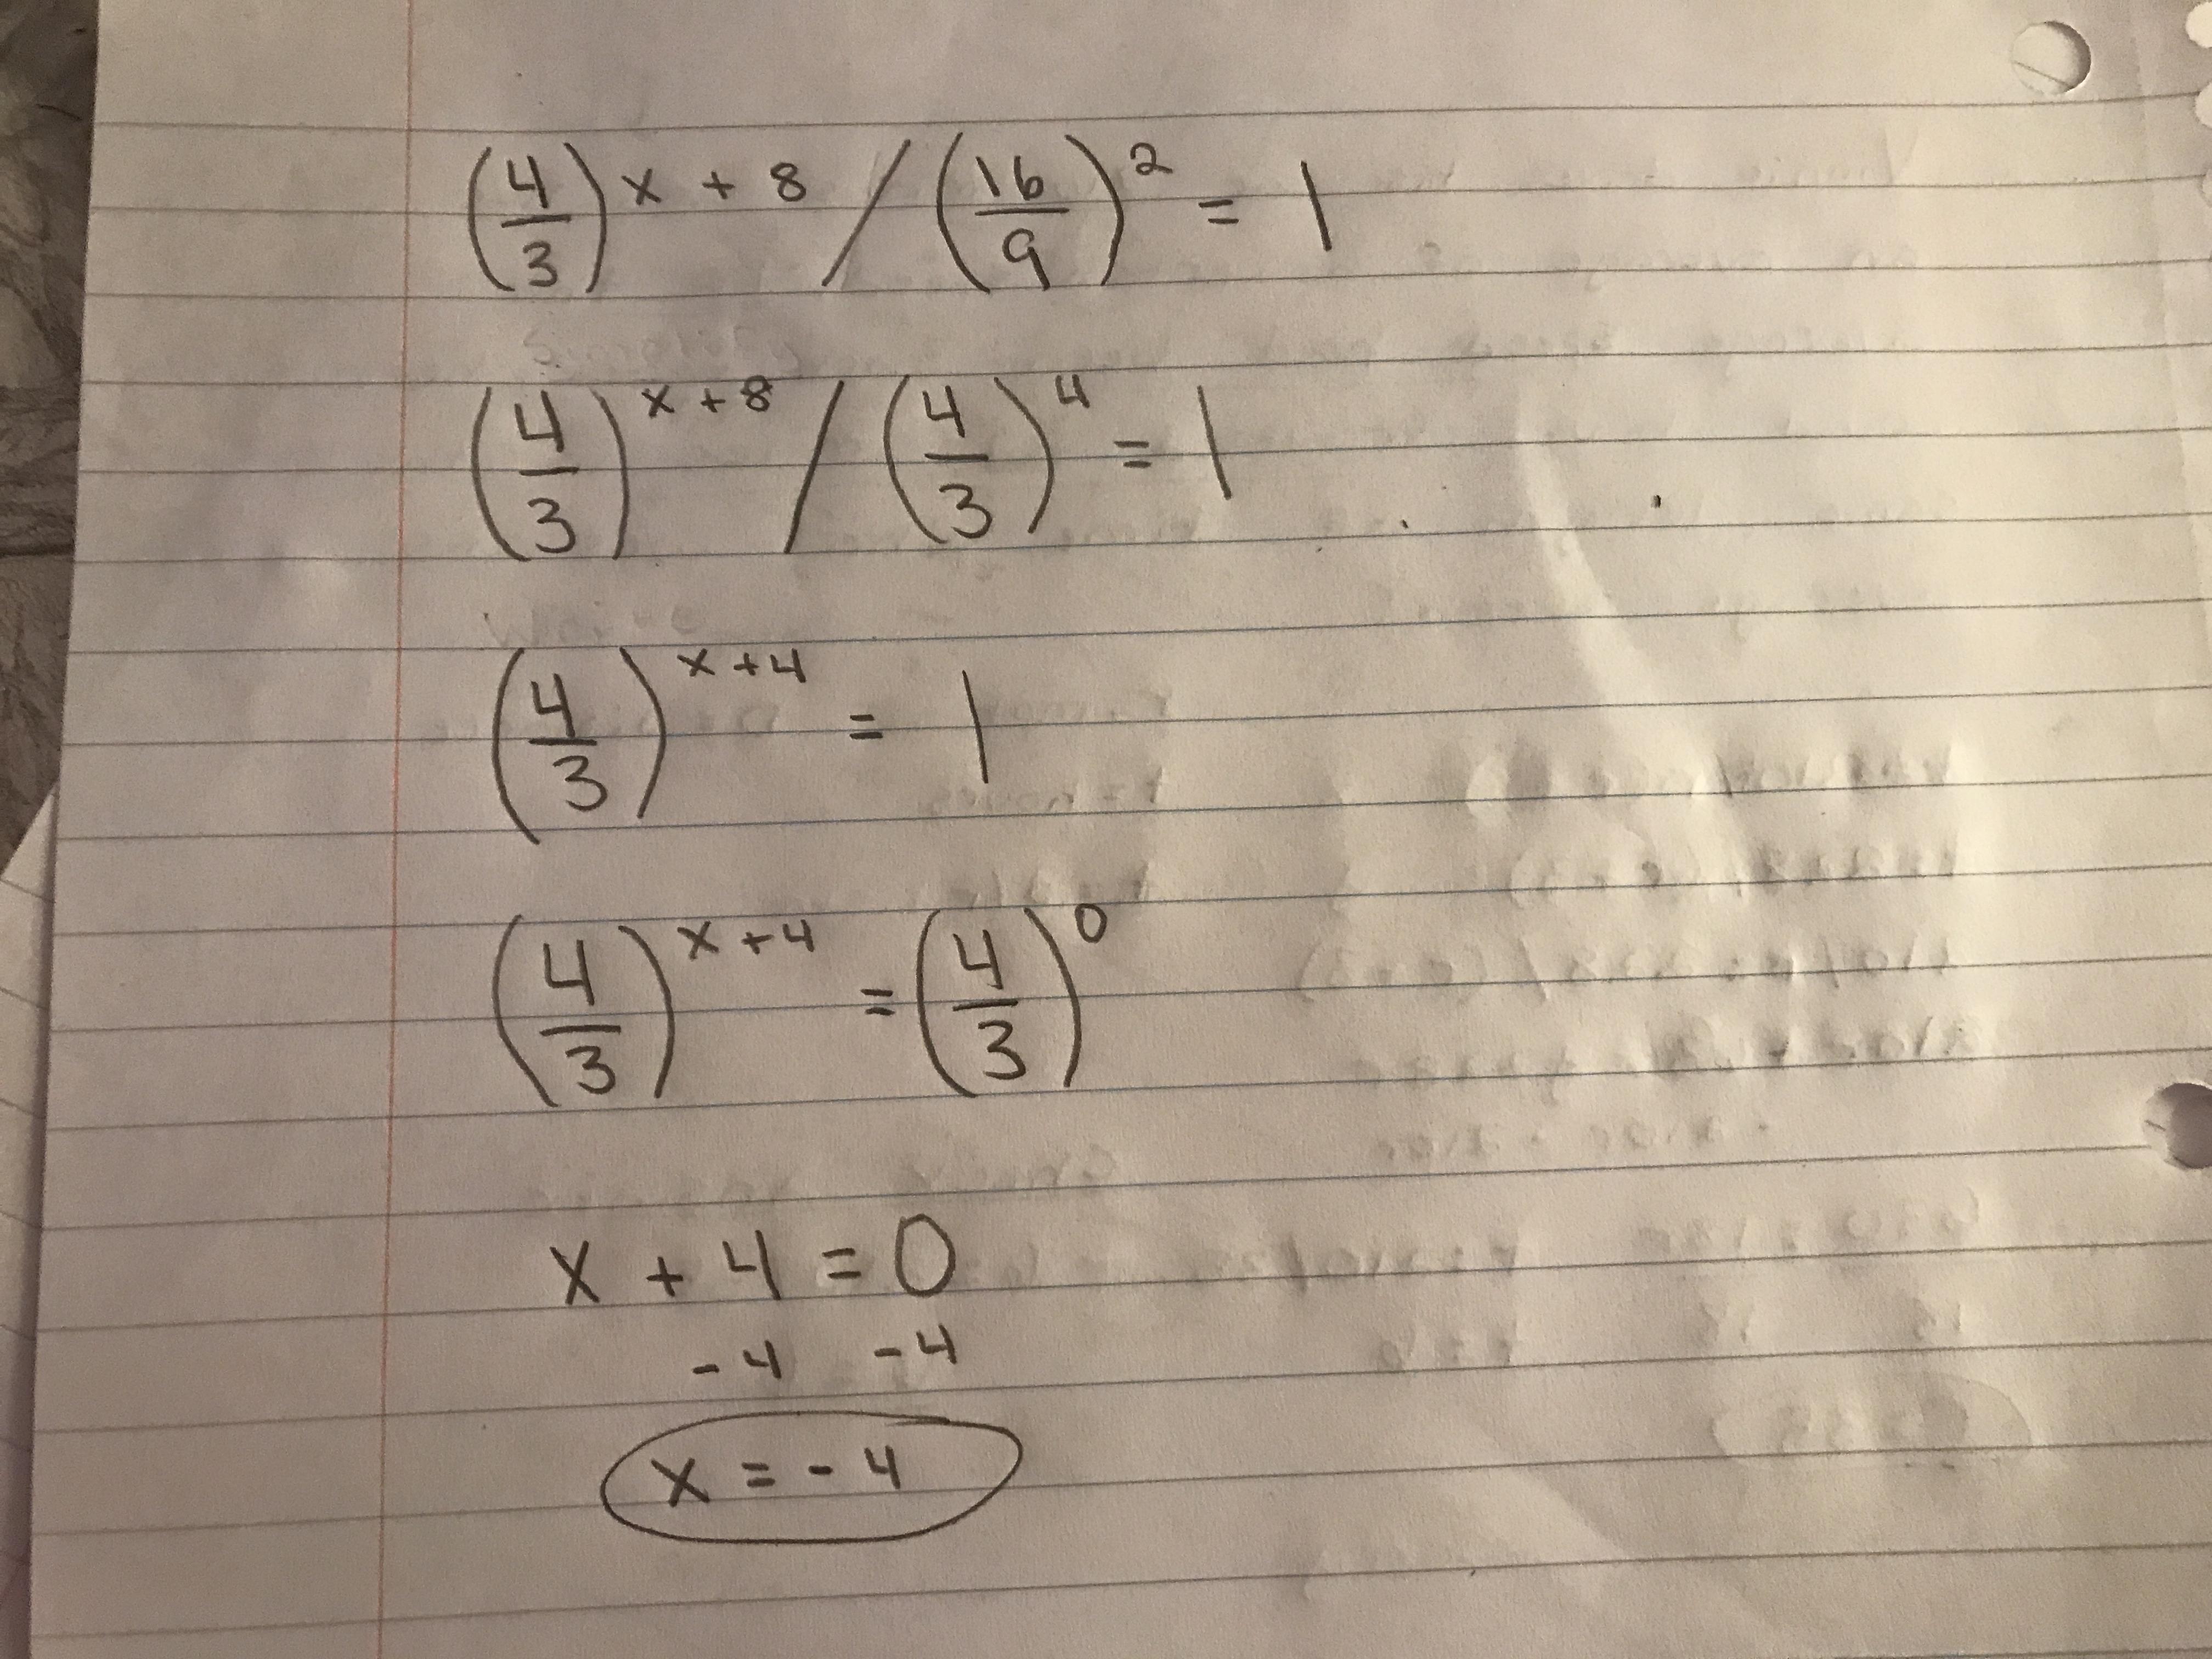 (4/3)^(x + 8) / (16/9)^2 = 1
(4/3)^(x + 8) / (4/3)^4 = 1
(4/3)^(x + 4) = 1
(4/3)^(x + 4) = (4/3)^0
x + 4 = 0
- 4 - 4
x = - 4